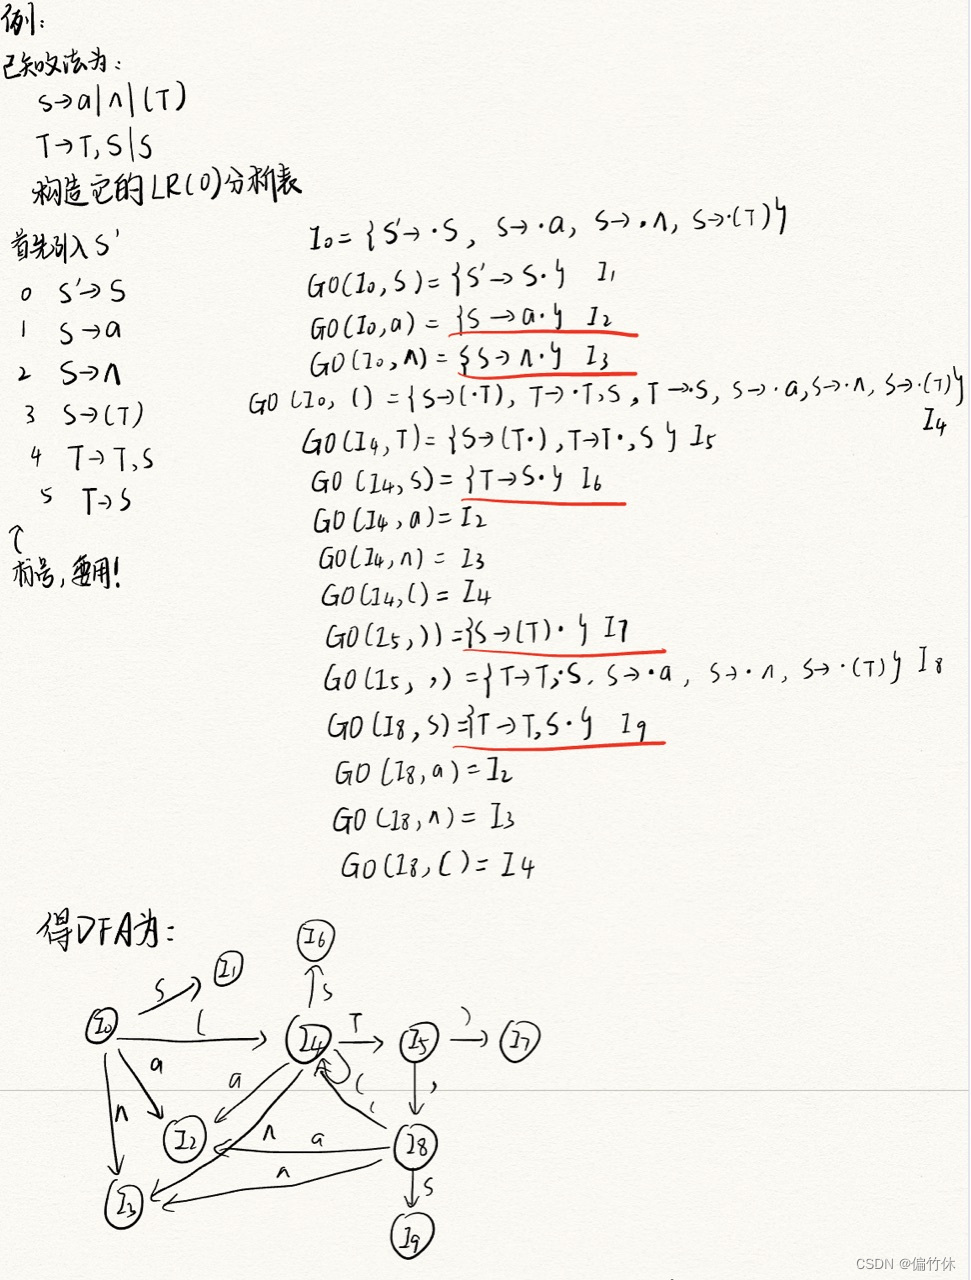 例:
已知文法为:
S→a|∧|(T)
T→T,S|S
构造它的LR(0)分析表
首先引入S'
0 S'→S
1 S→a
2 S→∧
3 S→(T)
4 T→T,S
5 T→S
↑
标号,要用!
I0={S'→·S, S→·a, S→·∧, S→·(T)}
GO(I0,S)={S'→S·} I1
GO(I0,a)={S→a·} I2
GO(I0,∧)={S→∧·} I3
GO(I0,()={S→(·T), T→·T,S, T→·S, S→·a,S→·∧, S→·(T)}
I4
GO(I4,T)={S→(T·),T→T·,S} I5
GO(I4,S)={T→S·} I6
GO(I4,a)=I2
GO(I4,∧)=I3
GO(I4,()=I4
GO(I5,))={S→(T)·} I7
GO(I5,,)={T→T,·S. S→·a, S→·∧, S→·(T)} I8
GO(I8,S)={T→T,S·} I9
GO(I8,a)=I2
GO(I8,∧)=I3
GO(I8,()=I4
得DFA为:
I6
I1
S
S
I0
(
I4
T
I5
)
I7
a
a
(
,
∧
(
I2
∧
a
I8
∧
S
I3
I9
CSDN @偏竹休